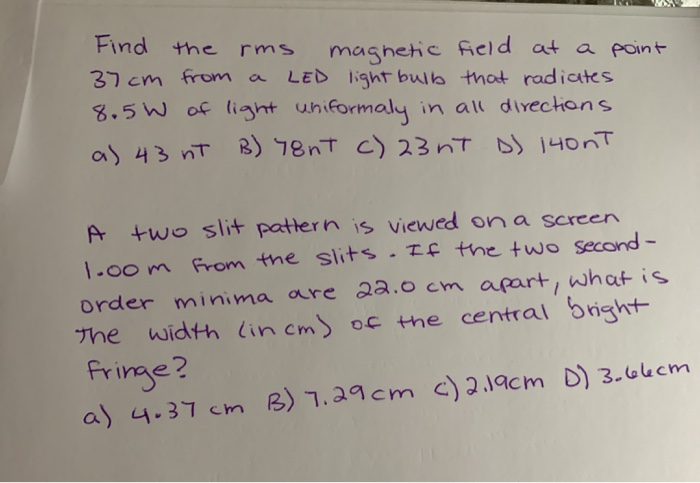 Find the rms magnetic field at a point
37 cm from a LED light bulb that radiates
8.5 W of light uniformaly in all directions
a) 43 nT B) 78nT C) 23nT D) 140nT
A two slit pattern is viewed on a screen
1.00 m from the slits. If the two second-
order minima are 22.0 cm apart, what is
The width (in cm) of the central bright
fringe?
a) 4.37 cm B) 7.29cm C) 2.19cm D) 3.66cm